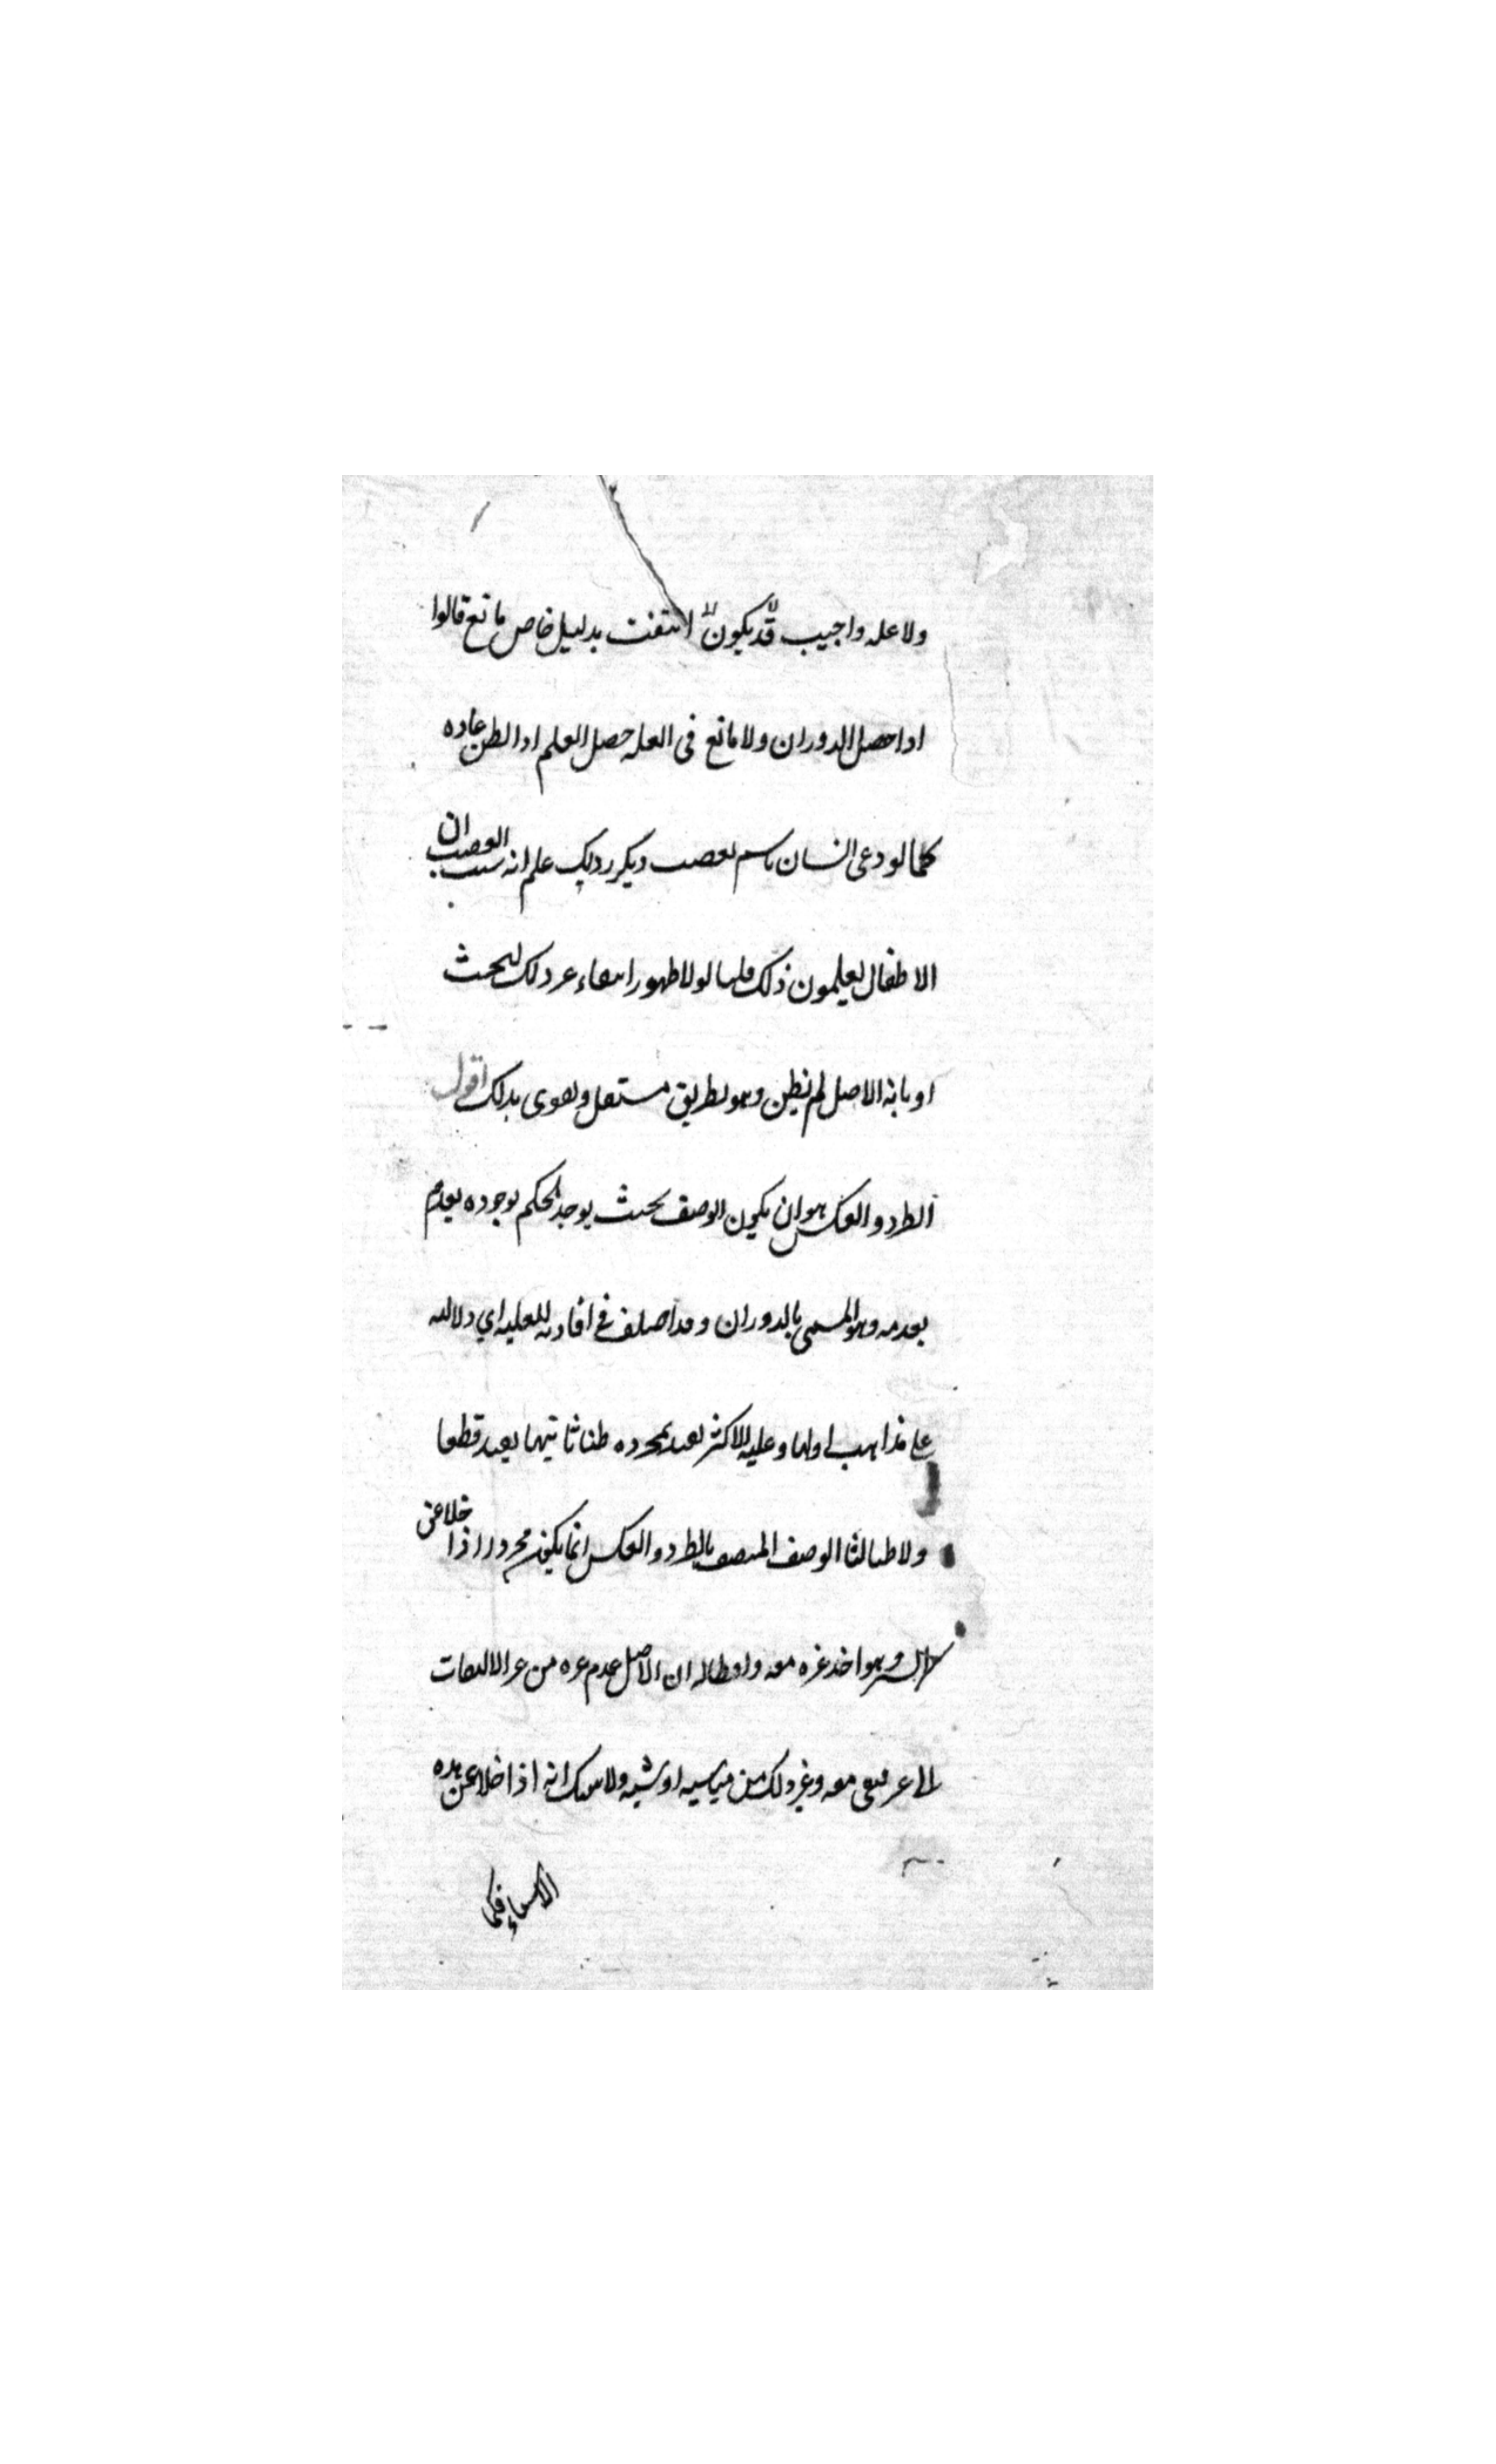 ولا عله واجيب قد يكون انتفت بدليل خاص مانع قالوا
اداحصل الدوران ولا مانع فى العله حصل العلم او الظن عاده
كما لو دعى انسان باسم فغضب وتكرر ذلك علم انه سبب الغضب ان
الاطفال يعلمون ذلك قلنا لولا ظهور انتفاء غير ذلك لبحث
او بانه الاصل لم يظن وهو طريق مستقل ويقوى بذلك اقول
الطرد والعكس هو ان يكون الوصف بحيث يوجد الحكم بوجوده يعدم
بعدمه وهو المسمى بالدوران وقد اختلف فى افادته للعليه اي دلالته
على مذاهب اولها وعليه الاكثر يفيد بمجرده ظنا ثانيها يفيد قطعا
ولا ظنا لنا الوصف المتصف بالطرد والعكس انما يكون مجردا اذا خلا عن
السبر وهو اخذ غيره معه وابطاله ان الاصل عدم غيره من غير الالتفات
الى غير نفى معه وغير ذلك من مناسبه او شبه ولا شك انه اذا خلا عن هذه
الاشياء فكما